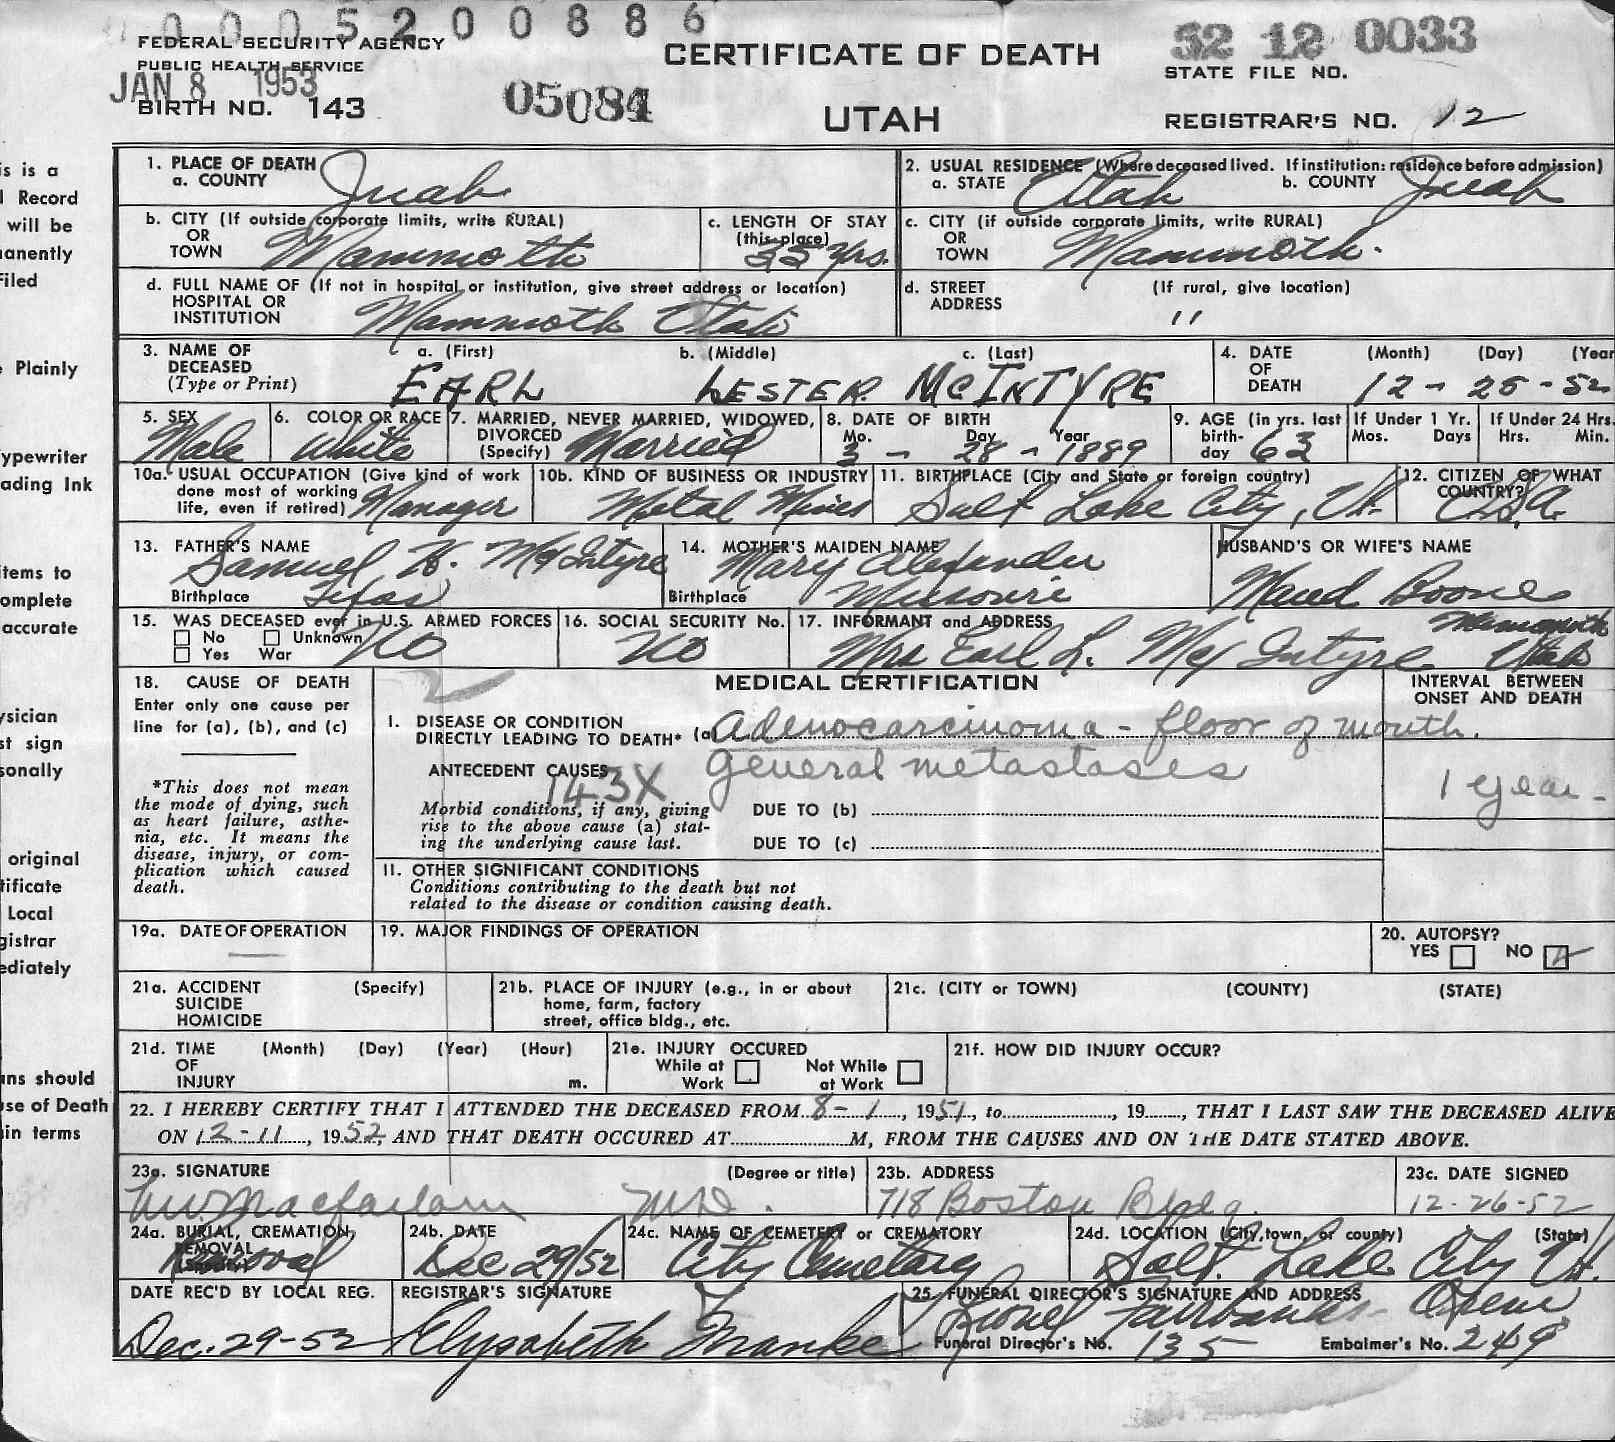 0 0 0 5 2 0 0 8 8 6
FEDERAL SECURITY AGENCY
PUBLIC HEALTH SERVICE
JAN 8 1953
BIRTH NO. 143
05084
CERTIFICATE OF DEATH
UTAH
52 12 0033
STATE FILE NO.
REGISTRAR'S NO. 12
is is a
l Record
will be
manently
Filed
Plainly
ypewriter
ading Ink
items to
omplete
accurate
ysician
st sign
sonally
original
tificate
Local
gistrar
ediately
ans should
se of Death
in terms
1. PLACE OF DEATH
a. COUNTY Juab
2. USUAL RESIDENCE (Where deceased lived. If institution: residence before admission)
a. STATE Utah b. COUNTY Juab
b. CITY (If outside corporate limits, write RURAL)
OR
TOWN Mammoth
c. LENGTH OF STAY
(this place)
Yrs.
c. CITY (if outside corporate limits, write RURAL)
OR
TOWN Mammoth.
d. FULL NAME OF (If not in hospital or institution, give street address or location)
HOSPITAL OR
INSTITUTION Mammoth Utah
d. STREET (If rural, give location)
ADDRESS "
3. NAME OF a. (First) b. (Middle) c. (Last)
DECEASED
(Type or Print) EARL LESTER McINTYRE
4. DATE (Month) (Day) (Year
OF
DEATH 12 - 25 - 52
5. SEX
Male
6. COLOR OR RACE
White
7. MARRIED, NEVER MARRIED, WIDOWED,
DIVORCED
(Specify) Married
8. DATE OF BIRTH
Mo. Day Year
3 - 28 - 1889
9. AGE (in yrs. last
birth-
day 63
If Under 1 Yr.
Mos. Days
If Under 24 Hrs.
Hrs. Min.
10a. USUAL OCCUPATION (Give kind of work
done most of working
life, even if retired) Manager
10b. KIND OF BUSINESS OR INDUSTRY
Metal Mines
11. BIRTHPLACE (City and State or foreign country)
Salt Lake City, Ut.
12. CITIZEN OF WHAT
COUNTRY?
U.S.A.
13. FATHER'S NAME
Samuel H. McIntyre
Birthplace Texas
14. MOTHER'S MAIDEN NAME
Mary Alexander
Birthplace Missouri
HUSBAND'S OR WIFE'S NAME
Maud Boone
15. WAS DECEASED ever in U.S. ARMED FORCES
No Unknown
Yes War NO
16. SOCIAL SECURITY No.
NO
17. INFORMANT and ADDRESS
Mrs Earl L. McIntyre Mammoth
Utah
18. CAUSE OF DEATH
Enter only one cause per
line for (a), (b), and (c)
*This does not mean
the mode of dying, such
as heart failure, asthe-
nia, etc. It means the
disease, injury, or com-
plication which caused
death.
MEDICAL CERTIFICATION
INTERVAL BETWEEN
ONSET AND DEATH
I. DISEASE OR CONDITION
DIRECTLY LEADING TO DEATH* (a) Adenocarcinoma - floor of mouth.
ANTECEDENT CAUSES general metastases
143X
1 year -
Morbid conditions, if any, giving
rise to the above cause (a) stat-
ing the underlying cause last.
DUE TO (b)
DUE TO (c)
11. OTHER SIGNIFICANT CONDITIONS
Conditions contributing to the death but not
related to the disease or condition causing death.
19a. DATE OF OPERATION
19. MAJOR FINDINGS OF OPERATION
20. AUTOPSY?
YES NO
21a. ACCIDENT (Specify)
SUICIDE
HOMICIDE
21b. PLACE OF INJURY (e.g., in or about
home, farm, factory
street, office bldg., etc.
21c. (CITY or TOWN) (COUNTY) (STATE)
21d. TIME (Month) (Day) (Year) (Hour)
OF
INJURY m.
21e. INJURY OCCURED
While at Not While
Work at Work
21f. HOW DID INJURY OCCUR?
22. I HEREBY CERTIFY THAT I ATTENDED THE DECEASED FROM 8-1, 1951, to, 19, THAT I LAST SAW THE DECEASED ALIVE
ON 12-11, 1952, AND THAT DEATH OCCURED AT M, FROM THE CAUSES AND ON THE DATE STATED ABOVE.
23a. SIGNATURE (Degree or title)
Macfarlane MD.
23b. ADDRESS
718 Boston Bldg.
23c. DATE SIGNED
12-26-52
24a. BURIAL, CREMATION,
REMOVAL
(Specify)
Removal
24b. DATE
Dec 29/52
24c. NAME OF CEMETERY or CREMATORY
City Cemetary
24d. LOCATION (City, town, or county) (State)
Salt Lake City Ut.
DATE REC'D BY LOCAL REG.
Dec. 29-52
REGISTRAR'S SIGNATURE
Elysabeth Franke
25. FUNERAL DIRECTOR'S SIGNATURE AND ADDRESS
Lionel Fairbanks
Funeral Director's No. 135 Embalmer's No. 249